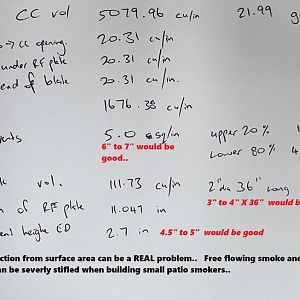 CC vol 5079.96 cu/in 21.99 g
→ CC opening. 20.31 cu/in
under RF plate 20.31 cu/in
end of 20.31 cu/in
1676.38 cu/in
5.0 sq/in upper 20% 1
6" to 7" would be Lower 80% 4
good..
vol. 111.73 cu/in 2"dia 36" long
3" to 4" X 36" would be
of RF plate 11.047 in
height ED 2.7 in 4.5" to 5" would be good
ction from surface area can be a REAL problem.. Free flowing smoke and
an be severly stifled when building small patio smokers..